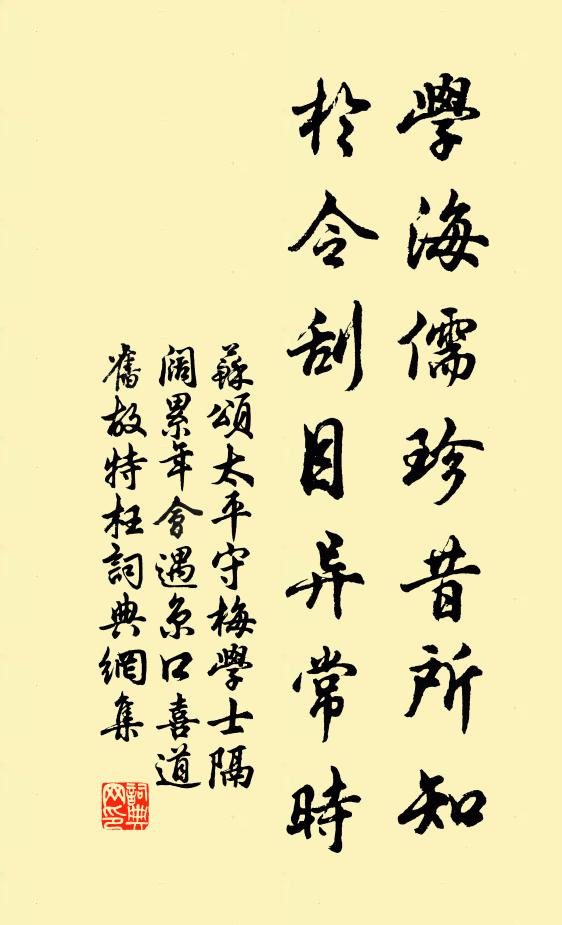 學海儒珍昔所知
於今刮目异常時
蘇頌太平守梅學士隔
闊累年會遇京口喜道
舊故特枉詞典網集
詞典網印